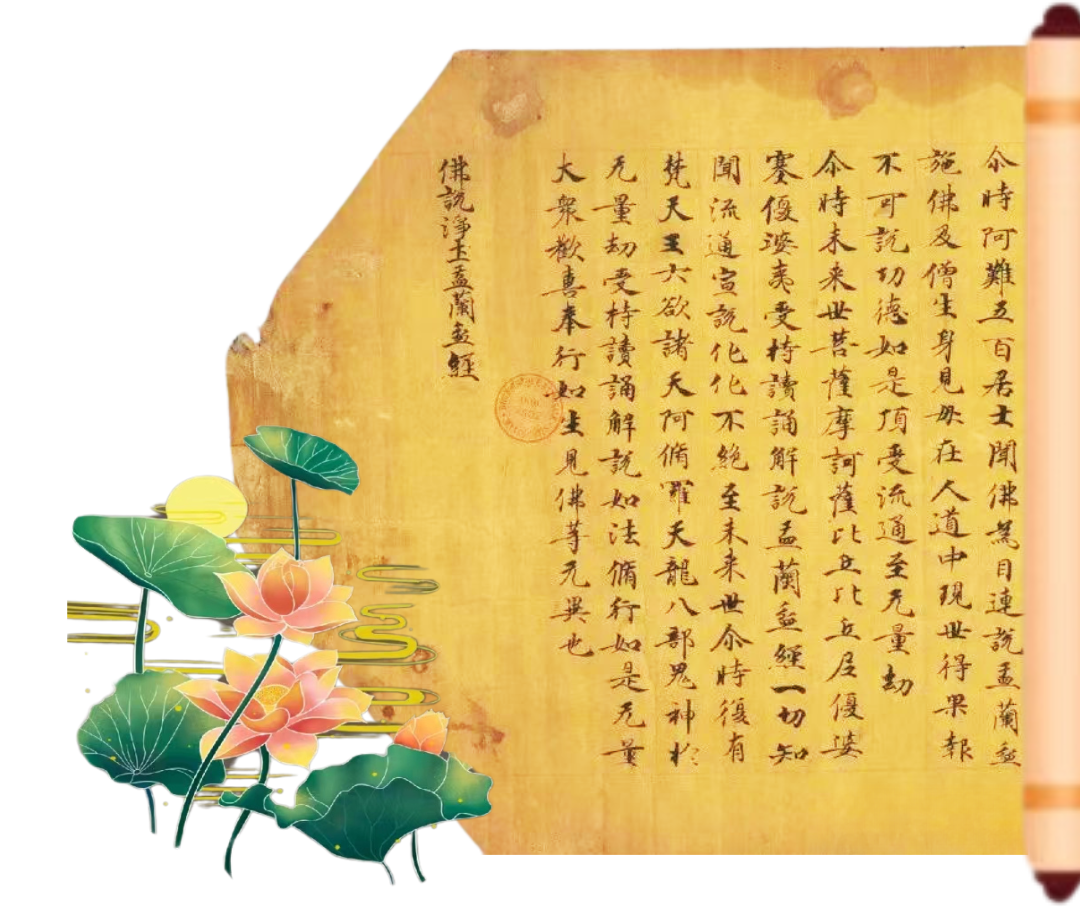 尒時阿難五百居士聞佛為目連說盂蘭盆
施佛及僧生身見母在人道中現世得果報
不可說功德如是頂受流通至无量劫
尒時未来世菩薩摩訶薩比丘比丘尼優婆
塞優婆夷受持讀誦解說盂蘭盆經一切知
聞流通宣說化化不絕至未来世尒時復有
梵天王六欲諸天阿脩羅天龍八部鬼神於
无量劫受持讀誦解說如法脩行如是无量
大衆歡喜奉行如生見佛等无異也
佛說淨土盂蘭盆經